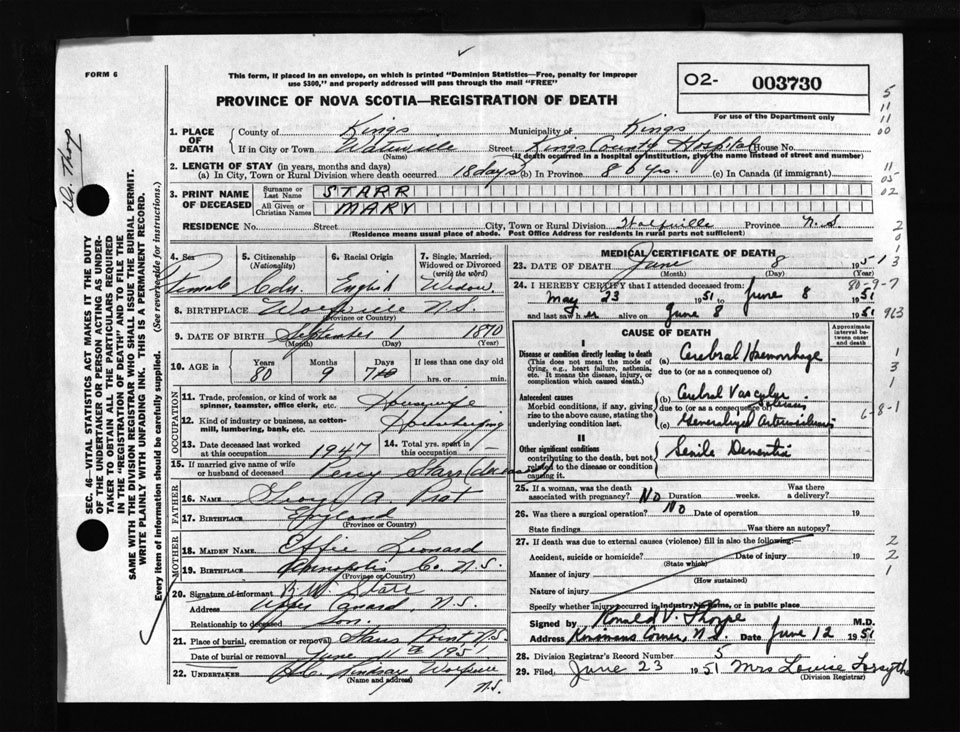 FORM 6
This form, if placed in an envelope, on which is printed "Dominion Statistics—Free, penalty for improper
use $300," and properly addressed will pass through the mail "FREE"
PROVINCE OF NOVA SCOTIA—REGISTRATION OF DEATH
O2- 003730
For use of the Department only
Dr. Thorp
SEC. 46—VITAL STATISTICS ACT MAKES IT THE DUTY
OF THE UNDERTAKER OR PERSON ACTING AS UNDER-
TAKER TO OBTAIN ALL THE PARTICULARS REQUIRED
IN THE "REGISTRATION OF DEATH" AND TO FILE THE
SAME WITH THE DIVISION REGISTRAR WHO SHALL ISSUE THE BURIAL PERMIT.
WRITE PLAINLY WITH UNFADING INK. THIS IS A PERMANENT RECORD.
Every item of information should be carefully supplied. (See reverse side for instructions.)
1. PLACE OF DEATH
County of Kings Municipality of Kings
If in City or Town Waterville Street Kings County Hospital House No.
(Name) (If death occurred in a hospital or institution, give the name instead of street and number)
2. LENGTH OF STAY (in years, months and days)
(a) In City, Town or Rural Division where death occurred 18 days (b) In Province 80 yrs. (c) In Canada (if immigrant)
3. PRINT NAME OF DECEASED
Surname or Last Name STARR
All Given or Christian Names MARY
RESIDENCE No. Street City, Town or Rural Division Wolfville Province N.S.
(Residence means usual place of abode. Post Office Address for residents in rural parts not sufficient)
4. Sex Female
5. Citizenship (Nationality) Cdn.
6. Racial Origin English
7. Single, Married, Widowed or Divorced (write the word) Widow
8. BIRTHPLACE Wolfville N.S.
(Province or Country)
9. DATE OF BIRTH September 1 1870
(Month) (Day) (Year)
10. AGE in Years 80 Months 9 Days 7 If less than one day old hrs. or min.
OCCUPATION
11. Trade, profession, or kind of work as spinner, teamster, office clerk, etc. Housewife
12. Kind of industry or business, as cotton-mill, lumbering, bank, etc. Housekeeping
13. Date deceased last worked at this occupation 1947
14. Total yrs. spent in this occupation
15. If married give name of wife or husband of deceased Percy Starr (deceased
FATHER
16. NAME George A. Prat
17. BIRTHPLACE England
(Province or Country)
MOTHER
18. MAIDEN NAME Effie Leonard
19. BIRTHPLACE Annapolis Co. N.S.
(Province or Country)
20. Signature of informant R.W. Starr
Address Upper Canard, N.S.
Relationship to deceased Son.
21. Place of burial, cremation or removal Starrs Point N.S.
Date of burial or removal June 11th 1951
22. UNDERTAKER Lindsay Wolfville N.S.
(Name and address)
MEDICAL CERTIFICATE OF DEATH
23. DATE OF DEATH June 8 1951
(Month) (Day) (Year)
24. I HEREBY CERTIFY that I attended deceased from:
May 23 1951 to June 8 1951
and last saw her alive on June 8 1951
CAUSE OF DEATH
Approximate interval between onset and death
I
Disease or condition directly leading to death
(This does not mean the mode of dying, e.g., heart failure, asthenia, etc. It means the disease, injury, or complication which caused death.)
(a) Cerebral Haemorrhage
due to (or as a consequence of)
Antecedent causes
Morbid conditions, if any, giving rise to the above cause, stating the underlying condition last.
(b) Cerebral Vascular Sclerosis
due to (or as a consequence of)
(c) Generalized Arteriosclerosis
II
Other significant conditions
contributing to the death, but not related to the disease or condition causing it.
Senile Dementia
25. If a woman, was the death associated with pregnancy? No Duration weeks. Was there a delivery?
26. Was there a surgical operation? No Date of operation 19
State findings Was there an autopsy?
27. If death was due to external causes (violence) fill in also the following:
Accident, suicide or homicide? Date of injury 19
(State which)
Manner of injury
(How sustained)
Nature of injury
Specify whether injury occurred in industry, home, or in public place
Signed by Ronald V. Thorpe M.D.
Address Kinsmans Corner, N.S. Date June 12 1951
28. Division Registrar's Record Number 5
29. Filed June 23 1951 Mrs Louise Forsythe
(Division Registrar)
5
11
11
00
11
05
02
2
0
1
3
80-9-7
963
1
3
1
6-8-1
2
2
1